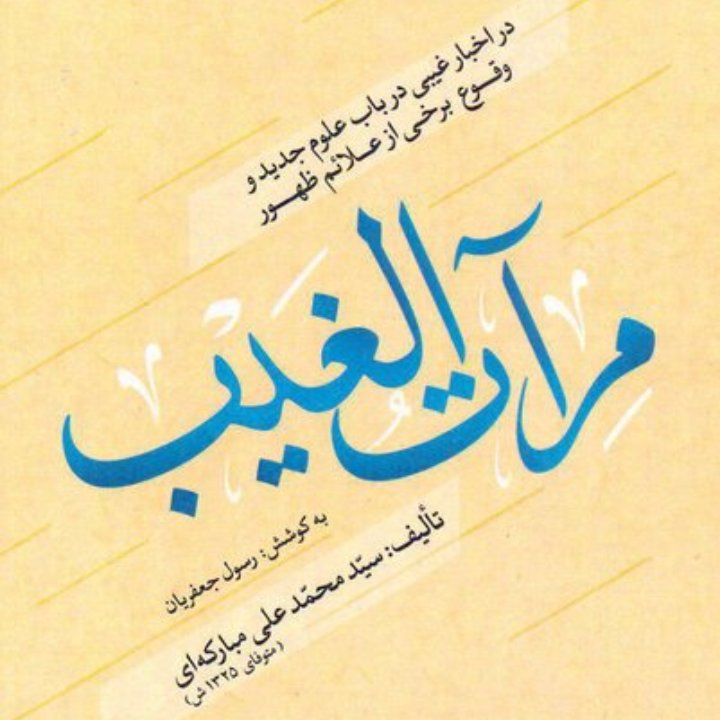 در اخبار غیبی در باب علوم جدید و
وقوع برخی از علائم ظهور
مرآت الغیب
به کوشش: رسول جعفریان
تألیف: سیّد محمّد علی مبارکه‌ای
(متوفای ۱۳۲۵ ش)